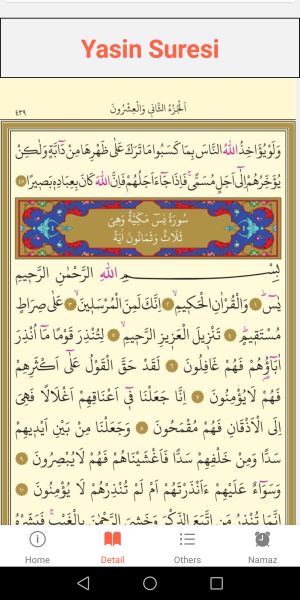 Yasin Suresi
اَلْجُزْءُ الثَّانِي وَالْعِشْرُونَ
٤٣٩
وَلَوْ يُؤَاخِذُ اللّٰهُ النَّاسَ بِمَا كَسَبُوا مَا تَرَكَ عَلٰى ظَهْرِهَا مِنْ دَٓابَّةٍ وَلٰكِنْ
يُؤَخِّرُهُمْ اِلٰٓى اَجَلٍ مُسَمًّىۚ فَاِذَا جَٓاءَ اَجَلُهُمْ فَاِنَّ اللّٰهَ كَانَ بِعِبَادِه۪ بَص۪يرًا ٤٥
سُورَةُ يٰسٓ مَكِّيَّةٌ وَهِيَ
ثَلَاثٌ وَثَمَانُونَ اٰيَةً
بِسْمِ اللّٰهِ الرَّحْمٰنِ الرَّح۪يمِ
يٰسٓ ١ وَالْقُرْاٰنِ الْحَك۪يمِ ٢ اِنَّكَ لَمِنَ الْمُرْسَل۪ينَ ٣ عَلٰى صِرَاطٍ
مُسْتَق۪يمٍ ٤ تَنْز۪يلَ الْعَز۪يزِ الرَّح۪يمِ ٥ لِتُنْذِرَ قَوْمًا مَٓا اُنْذِرَ
اٰبَٓاؤُ۬هُمْ فَهُمْ غَافِلُونَ ٦ لَقَدْ حَقَّ الْقَوْلُ عَلٰٓى اَكْثَرِهِمْ
فَهُمْ لَا يُؤْمِنُونَ ٧ اِنَّا جَعَلْنَا ف۪ٓي اَعْنَاقِهِمْ اَغْلَالًا فَهِيَ
اِلَى الْاَذْقَانِ فَهُمْ مُقْمَحُونَ ٨ وَجَعَلْنَا مِنْ بَيْنِ اَيْد۪يهِمْ
سَدًّا وَمِنْ خَلْفِهِمْ سَدًّا فَاَغْشَيْنَاهُمْ فَهُمْ لَا يُبْصِرُونَ ٩
وَسَوَٓاءٌ عَلَيْهِمْ ءَاَنْذَرْتَهُمْ اَمْ لَمْ تُنْذِرْهُمْ لَا يُؤْمِنُونَ ١٠
اِنَّمَا تُنْذِرُ مَنِ اتَّبَعَ الذِّكْرَ وَخَشِيَ الرَّحْمٰنَ بِالْغَيْبِۚ فَبَشِّرْهُ
Home Detail Others Namaz